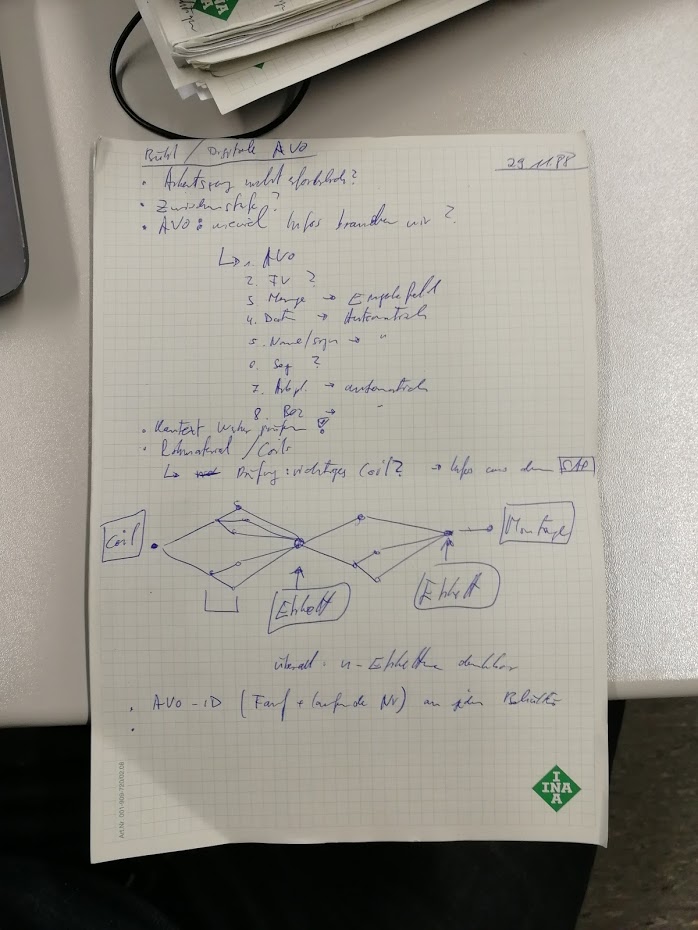 Bühl / Digitale AVO
29.11.
• Arbeitsgang nicht erforderlich?
• Zwischenstufe?
• AVO: wieviel Infos brauchen wir?
↳ 1. AVO
2. FV ?
3. Menge → Eingabefeld
4. Datum → Automatisch
5. Name/sign → "
6. Seq ?
7. Arbpl. → automatisch
8. BEZ → "
• prüfen
• Rohmaterial / Coils
↳ Prüfung: richtiges Coil? → Infos aus dem SAP
Coil
Montage
Etikett
Etikett
überall: n-Etiketten denkbar
• AVO-ID (Fauf + laufende Nr) an jeden Behälter
INA
INA
Art.Nr. 001-909-720/02.08